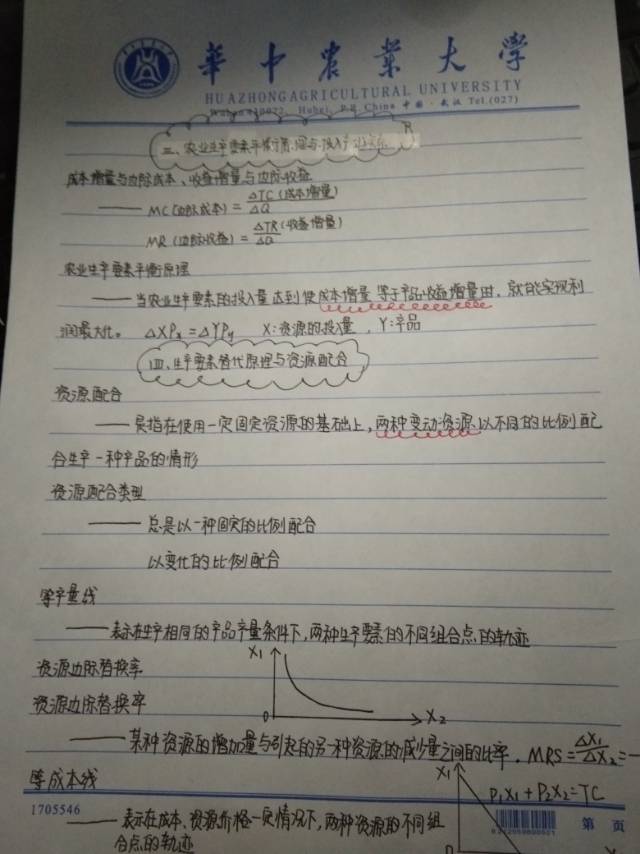 華中农業大学
HUAZHONG AGRICULTURAL UNIVERSITY
Wuhan 430072, Hubei, P.R.China 中国·武汉 Tel.(027)
三、农业生产要素平衡原理与投入
成本增量与边际成本、收益增量与边际收益
—— MC(边际成本) = ΔTC(成本增量)/ΔQ
MR(边际收益) = ΔTR(收益增量)/ΔQ
农业生产要素平衡原理
—— 当农业生产要素的投入量达到使成本增量等于产品收益增量时,就能实现利
润最大化。 ΔXPx=ΔYPy X:资源的投入量,Y:产品
四、生产要素替代原理与资源配合
资源配合
—— 是指在使用一定固定资源的基础上,两种变动资源以不同的比例配
合生产一种产品的情形
资源配合类型
—— 总是以一种固定的比例配合
以变化的比例配合
等产量线
—— 表示在生产相同的产品产量条件下,两种生产要素的不同组合点的轨迹
资源边际替换率
X1
资源边际替换率
0 X2
—— 某种资源的增加量与引起的另一种资源的减少量之间的比率. MRS=ΔX1/ΔX2=-
等成本线
X1
P1X1+P2X2=TC
1705546
第 页
—— 表示在成本、资源价格一定情况下,两种资源的不同组
合点的轨迹